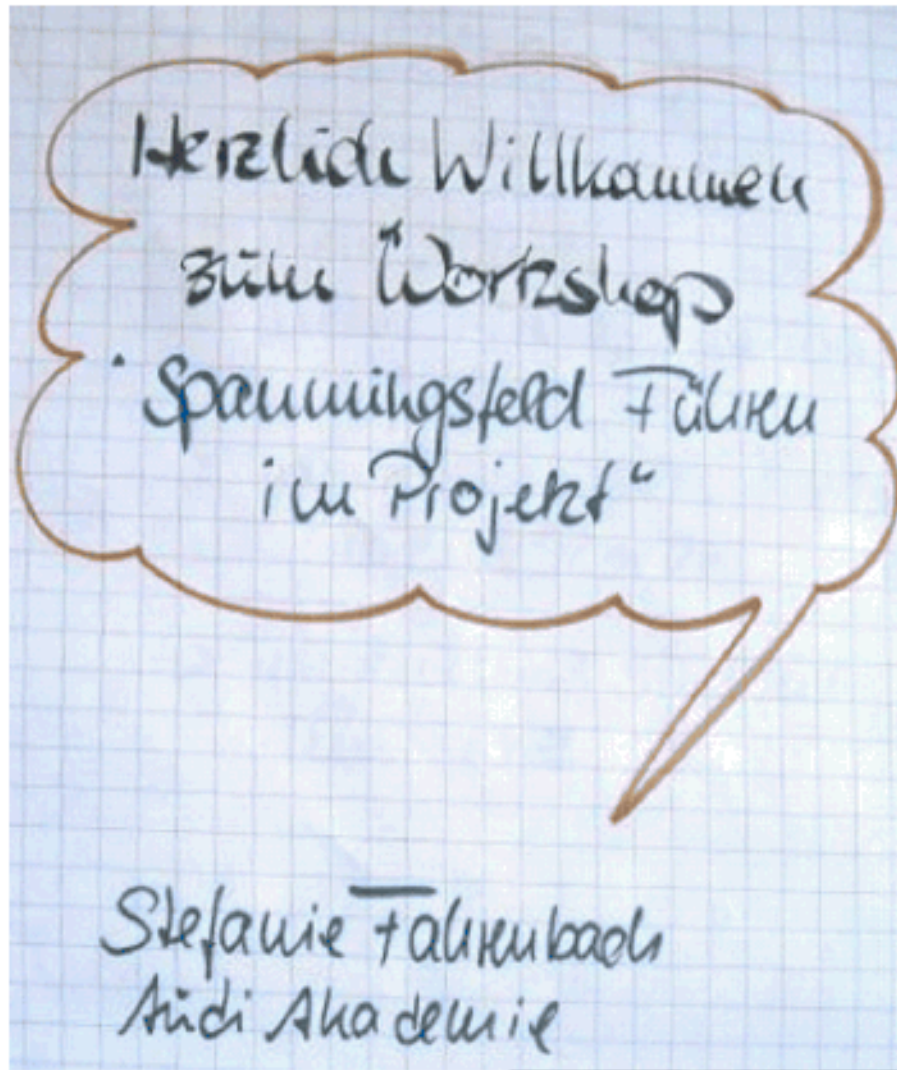 Herzlich Willkommen
zum Workshop
"Spannungsfeld Führen
im Projekt"
Stefanie Fahrenbach
Audi Akademie